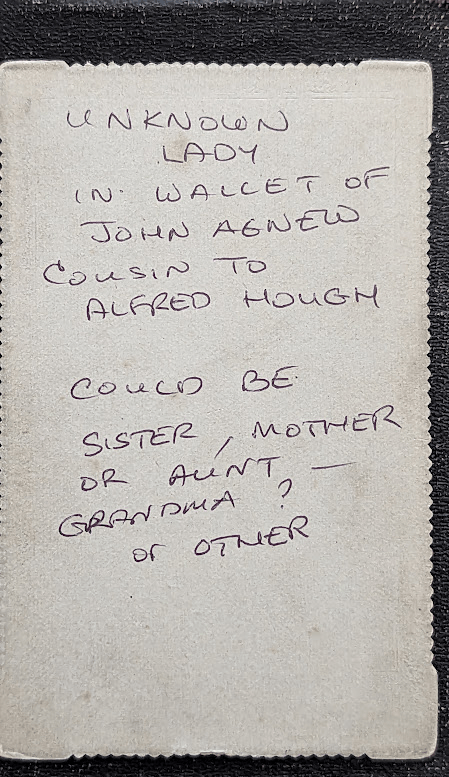 UNKNOWN
LADY
IN WALLET OF
JOHN AGNEW
COUSIN TO
ALFRED HOUGH
COULD BE
SISTER, MOTHER
OR AUNT —
GRANDMA ?
or OTHER